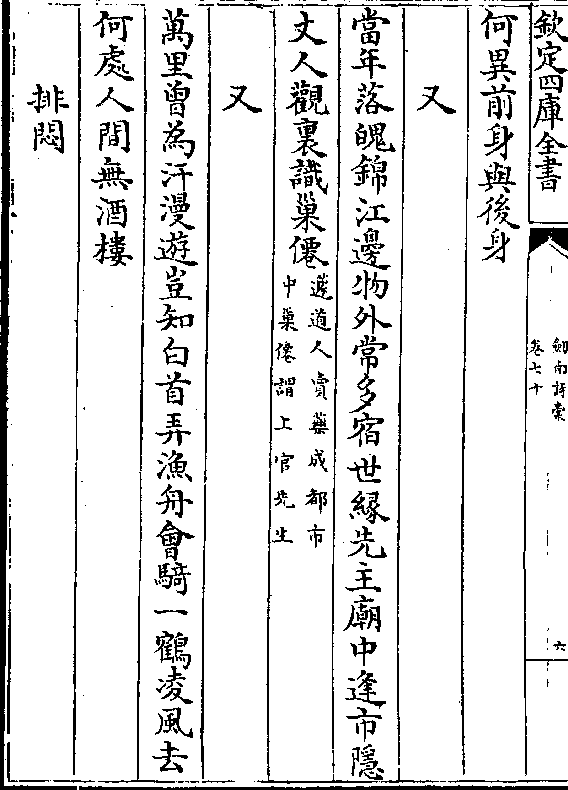 欽定四庫全書
劍南詩藁
卷七十
六
何異前身與後身
又
當年落魄錦江邊物外常多宿世緣先主廟中逢市隱
丈人觀裏識巢僊
遽道人賣藥成都市
中巢僊謂上官先生
又
萬里曾為汗漫遊豈知白首弄漁舟會騎一鶴凌風去
何處人間無酒樓
排悶